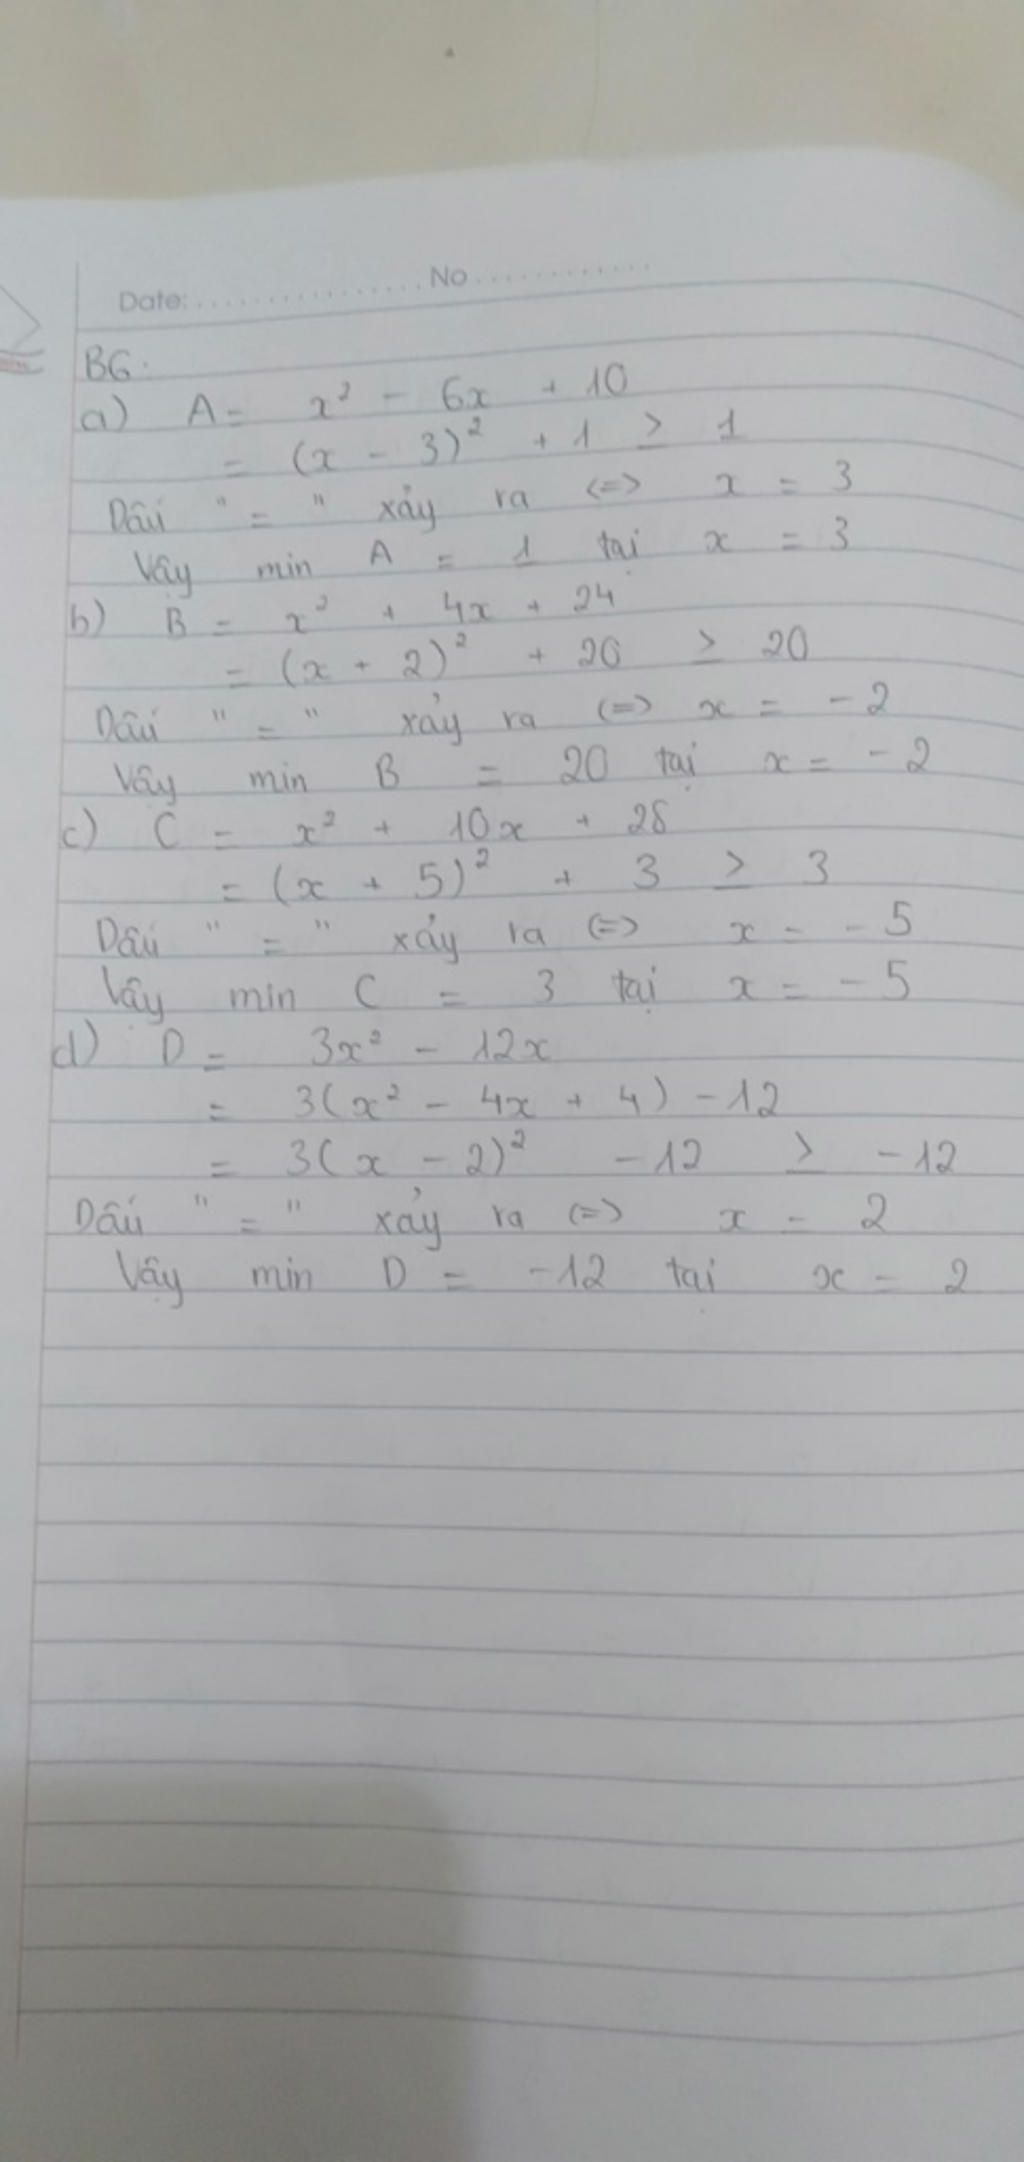 Date:................No............
BG.
a) A = x² - 6x + 10
= (x - 3)² + 1 ≥ 1
Dấu " = " xảy ra <=> x = 3
Vậy min A = 1 tại x = 3
b) B = x² + 4x + 24
= (x + 2)² + 20 ≥ 20
Dấu " = " xảy ra <=> x = -2
Vậy min B = 20 tại x = -2
c) C = x² + 10x + 28
= (x + 5)² + 3 ≥ 3
Dấu " = " xảy ra <=> x = -5
Vậy min C = 3 tại x = -5
d) D = 3x² - 12x
= 3(x² - 4x + 4) - 12
= 3(x - 2)² - 12 ≥ -12
Dấu " = " xảy ra <=> x = 2
Vậy min D = -12 tại x = 2